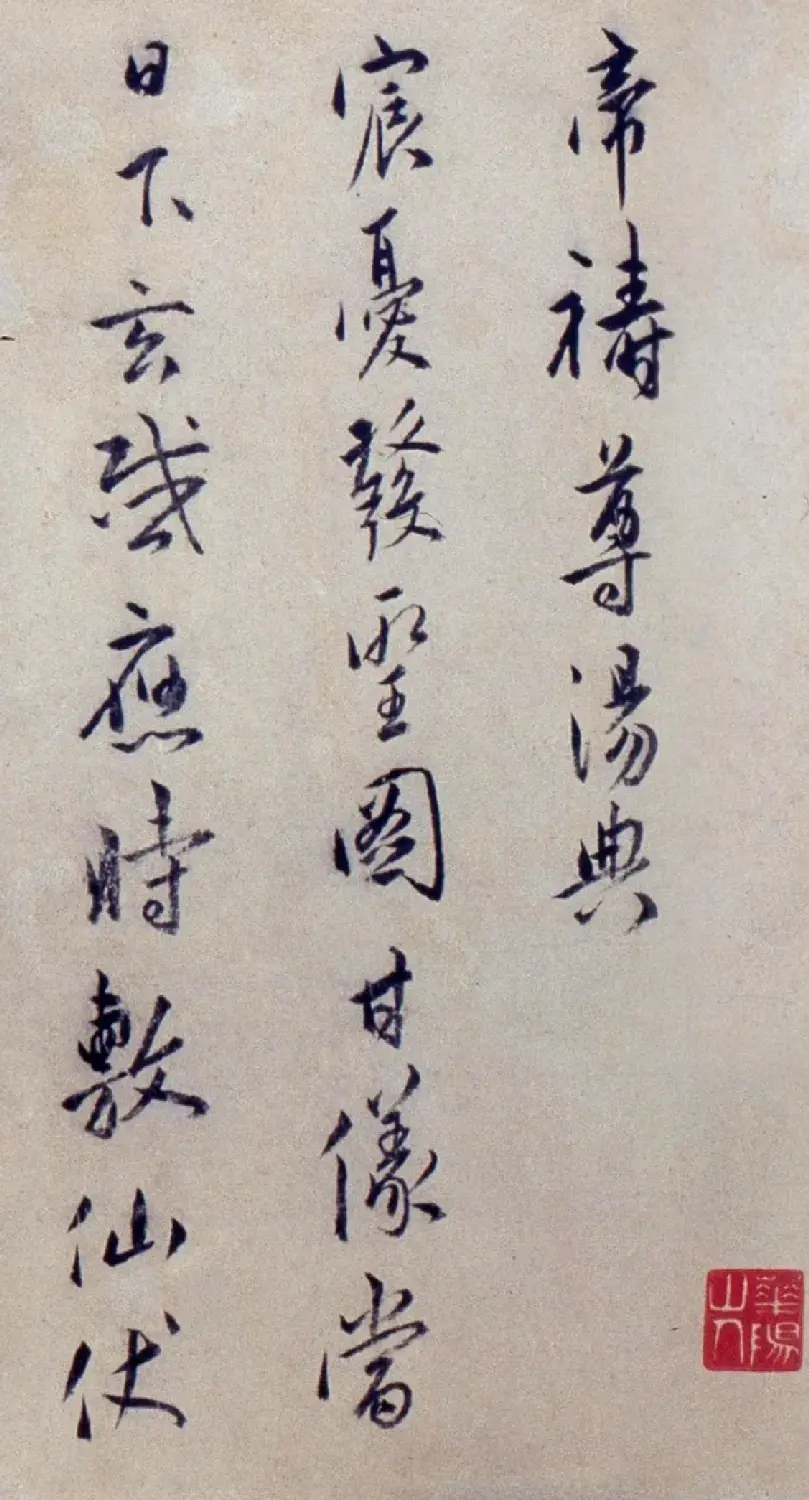 帝禱尊湯典
宸憂發聖圖甘當
日下玄感應時敷仙仗
華陽山人